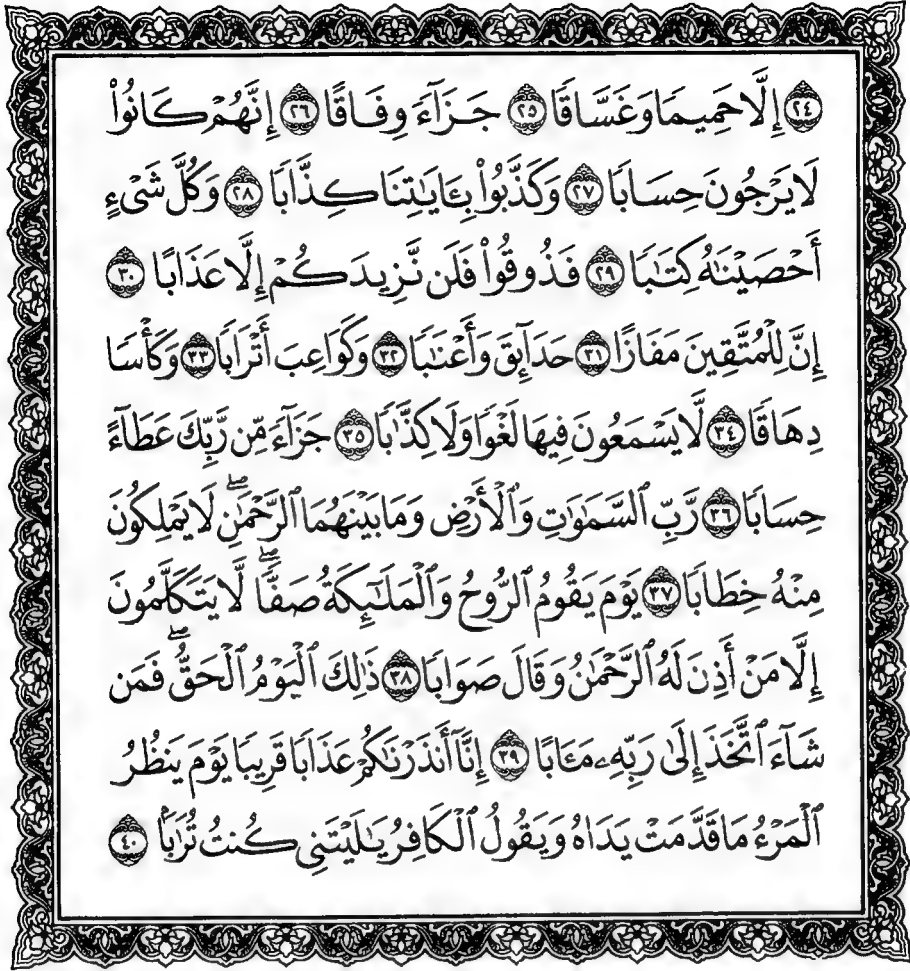 ۝٢٤ إِلَّا حَمِيمًا وَغَسَّاقًا ۝٢٥ جَزَآءً وِفَاقًا ۝٢٦ إِنَّهُمْ كَانُوا۟
لَا يَرْجُونَ حِسَابًا ۝٢٧ وَكَذَّبُوا۟ بِـَٔايَـٰتِنَا كِذَّابًا ۝٢٨ وَكُلَّ شَىْءٍ
أَحْصَيْنَـٰهُ كِتَـٰبًا ۝٢٩ فَذُوقُوا۟ فَلَن نَّزِيدَكُمْ إِلَّا عَذَابًا ۝٣٠
إِنَّ لِلْمُتَّقِينَ مَفَازًا ۝٣١ حَدَآئِقَ وَأَعْنَـٰبًا ۝٣٢ وَكَوَاعِبَ أَتْرَابًا ۝٣٣ وَكَأْسًا
دِهَاقًا ۝٣٤ لَّا يَسْمَعُونَ فِيهَا لَغْوًا وَلَا كِذَّٰبًا ۝٣٥ جَزَآءً مِّن رَّبِّكَ عَطَآءً
حِسَابًا ۝٣٦ رَّبِّ ٱلسَّمَـٰوَٰتِ وَٱلْأَرْضِ وَمَا بَيْنَهُمَا ٱلرَّحْمَـٰنِ ۖ لَا يَمْلِكُونَ
مِنْهُ خِطَابًا ۝٣٧ يَوْمَ يَقُومُ ٱلرُّوحُ وَٱلْمَلَـٰٓئِكَةُ صَفًّا ۖ لَّا يَتَكَلَّمُونَ
إِلَّا مَنْ أَذِنَ لَهُ ٱلرَّحْمَـٰنُ وَقَالَ صَوَابًا ۝٣٨ ذَٰلِكَ ٱلْيَوْمُ ٱلْحَقُّ ۖ فَمَن
شَآءَ ٱتَّخَذَ إِلَىٰ رَبِّهِۦ مَـَٔابًا ۝٣٩ إِنَّآ أَنذَرْنَـٰكُمْ عَذَابًا قَرِيبًا يَوْمَ يَنظُرُ
ٱلْمَرْءُ مَا قَدَّمَتْ يَدَاهُ وَيَقُولُ ٱلْكَافِرُ يَـٰلَيْتَنِى كُنتُ تُرَٰبًۢا ۝٤٠